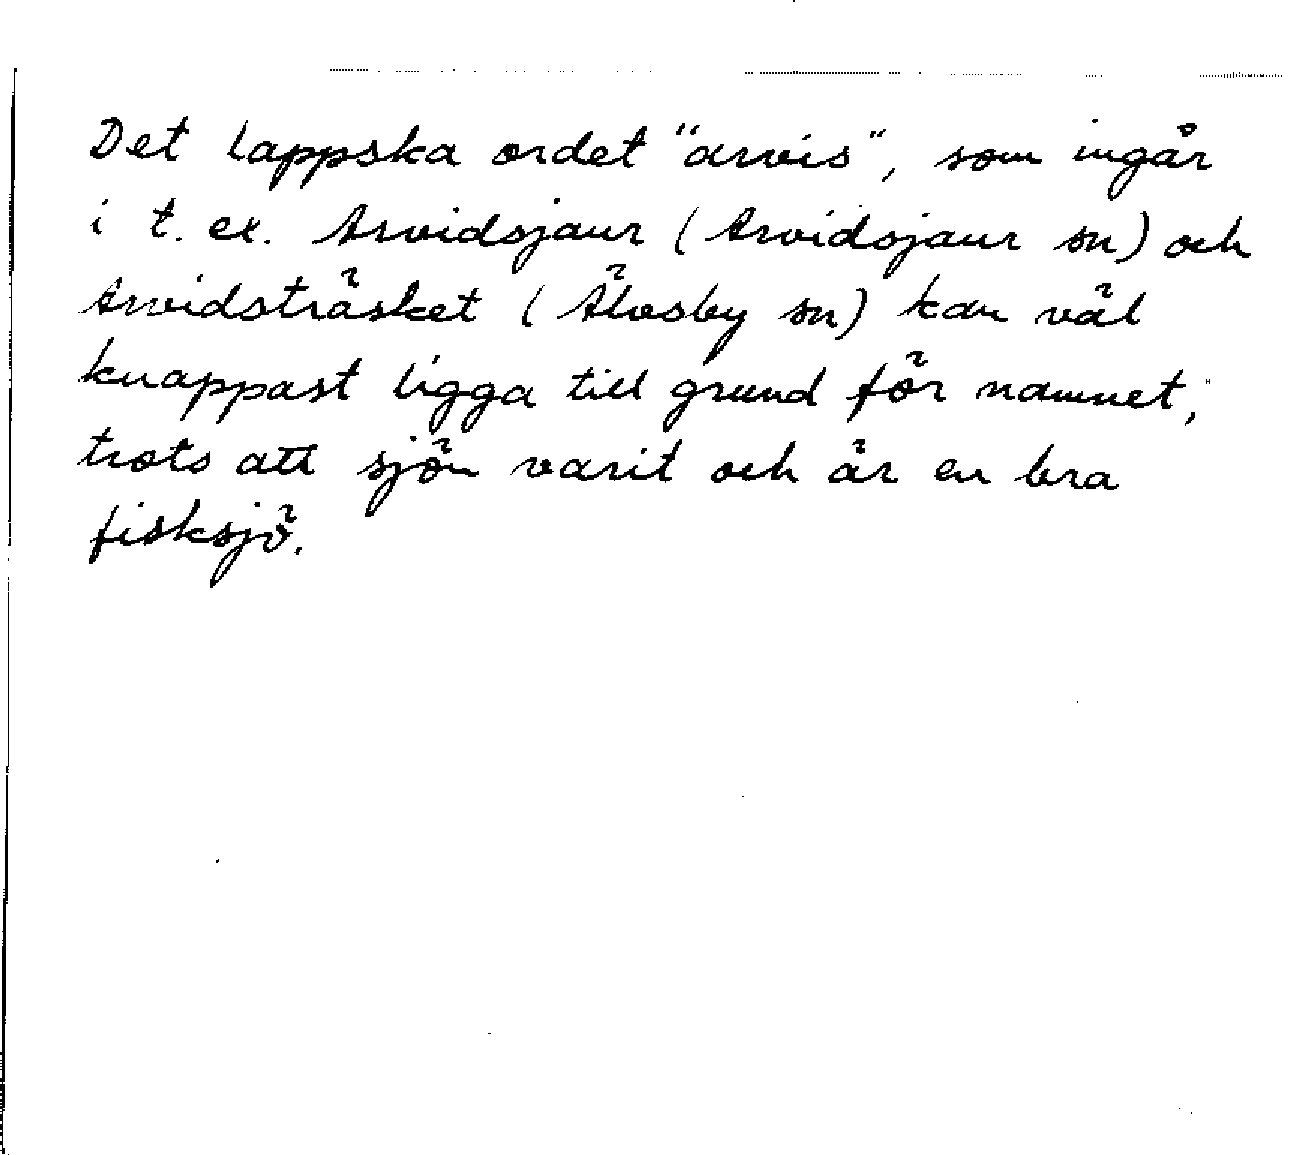 Det lappska ordet "arvis", som ingår
i t. ex. Arvidsjaur (Arvidsjaur sn) och
Arvidsträsket (Älvsby sn) kan väl
knappast ligga till grund för namnet,
trots att sjön varit och är en bra
fisksjö.